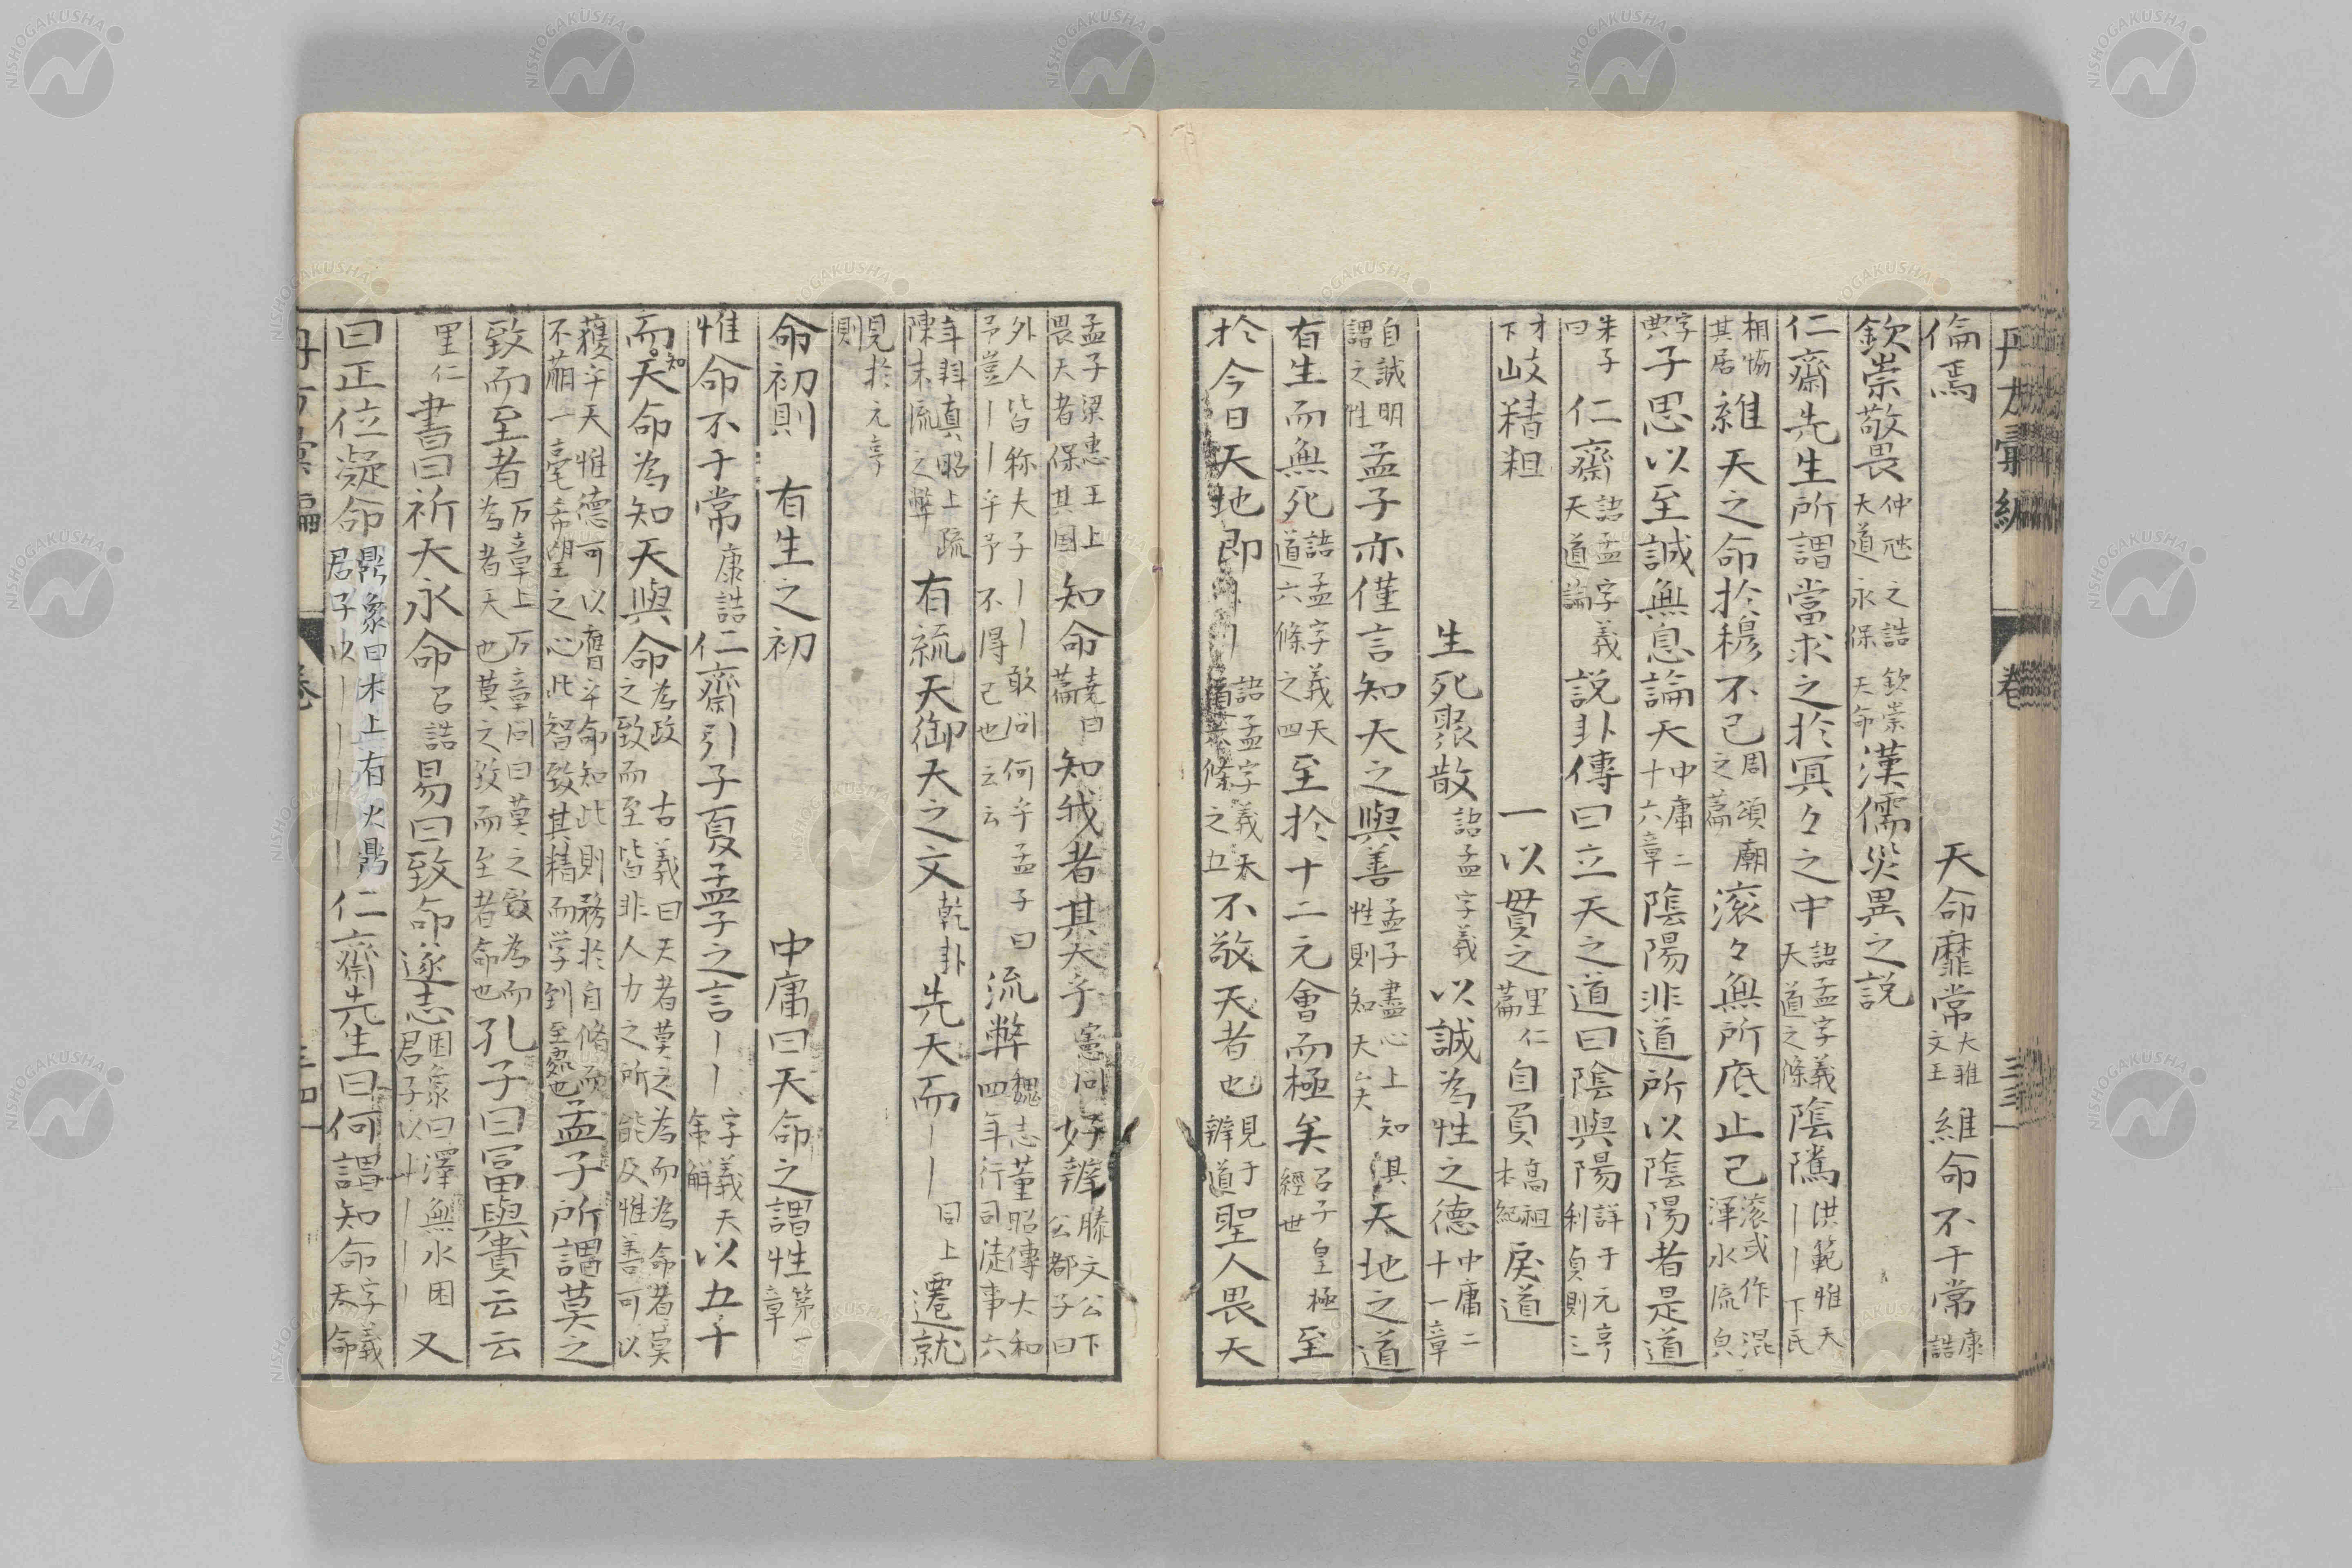 倫焉 天命靡常大雅文王 維命不于常康誥
欽崇敬畏仲虺之誥 欽崇天道永保天命 漢儒災異之説
仁齋先生所謂當求之於冥々之中語孟字義天道之條 陰隲洪範 惟天丨丨下民
相協其居 維天之命於穆不已周頌 廟之篇 滚々無所底止已滚或作混 渾水流皃
字典 子思以至誠無息論天中庸二十六章 陰陽非道所以陰陽者是道
朱子曰 仁齋語孟字義天道論 説卦傳曰立天之道曰陰與陽詳于元亨利貞則三
才下 岐精粗 一以貫之里仁篇 自負高祖本紀 戻道
生死聚散語孟字義 以誠為性之德中庸二十一章
自誠明謂之性 孟子亦僅言知天之與善孟子盡心上 知性則知天矣 倶天地之道
有生而無死語孟字義天道六條之四 至於十二元會而極矣召子皇極經世 至
於今日天地即丨丨語孟字義天道六條之五 不敬天者也見于辨道 聖人畏天
孟子梁惠王上 畏天者保其国 知命堯曰篇 知我者其天乎憲問 好辨滕文公下 公都子曰
外人皆称夫子丨丨敢问何乎孟子曰予豈丨丨乎予不得已也云云 流弊魏志董昭傳大和四年行司徒事六
年 昭上疏陳末流之弊 有統天御天之文乾卦 先天而丨丨同上 遷就
見於元亨則
命初則 有生之初 中庸曰天命之謂性第一章
惟命不于常康誥 仁齋引子夏孟子之言丨丨字義天命解 以五十
而知天命為知天與命為政 之致而至皆非人力之所能及惟善可以
獲乎天惟德可以膺乎命知此則務於自脩而不萠一毫希望之心此智致其精而学到至處也 孟子所謂莫之
致而至者万章上 万章问曰莫之致為而為者天也莫之致而至者命也 孔子曰冨與貴云云
里仁 書曰祈天永命召誥 易曰致命遂志困象曰澤無水困 君子以丨丨丨丨 又
曰正位凝命鼎象曰木上有火鼎 君子以丨丨丨丨 仁齋先生曰何謂知命字義天命